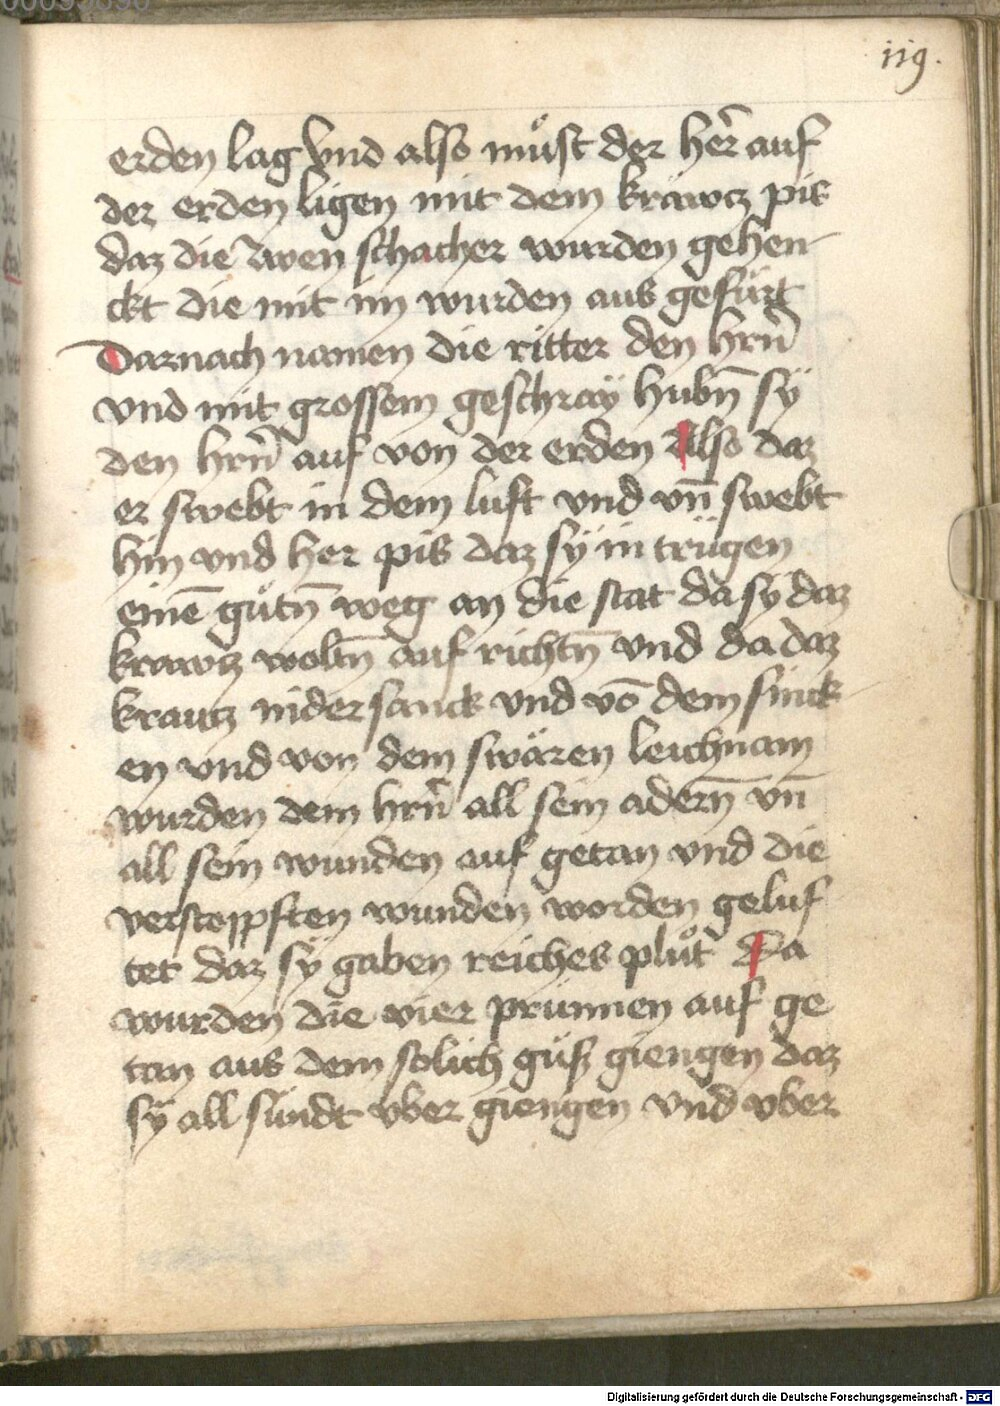 119.
erden lag Vnd also mu̔st der her̄ auf
der erden ligen mit dem kräwcz pis
daz die zwen schacher wurden gehen-
ckt die mit im wurden aus gefürt
Darnach namen die ritter den hrn̄
vnd mit grossem geschray hubn̄ sÿ
den hrn̄ auf von der erden Also daz
er swebt in dem luft vnd vn̄ swebt
hin vnd her pis daz sÿ in trügen
einē gůtn̄ weg an die stat da sÿ daz
krawcz woltn̄ auf richtn̄ vnd da daz
krautz nider sanck vnd vō dem sinck
en vnd von dem swären leichnam
wurden dem hrn̄ all sein adern̄ vn̄
all sein wunden auf getan vnd die
verstopften wunden worden geluf
tet daz sÿ gaben reiches plůt Da
wurden die vier prunnen auf ge
tan aus dem solich güß giengen daz
sÿ all sündt vber giengen vnd vber
Digitalisierung gefördert durch die Deutsche Forschungsgemeinschaft - DFG